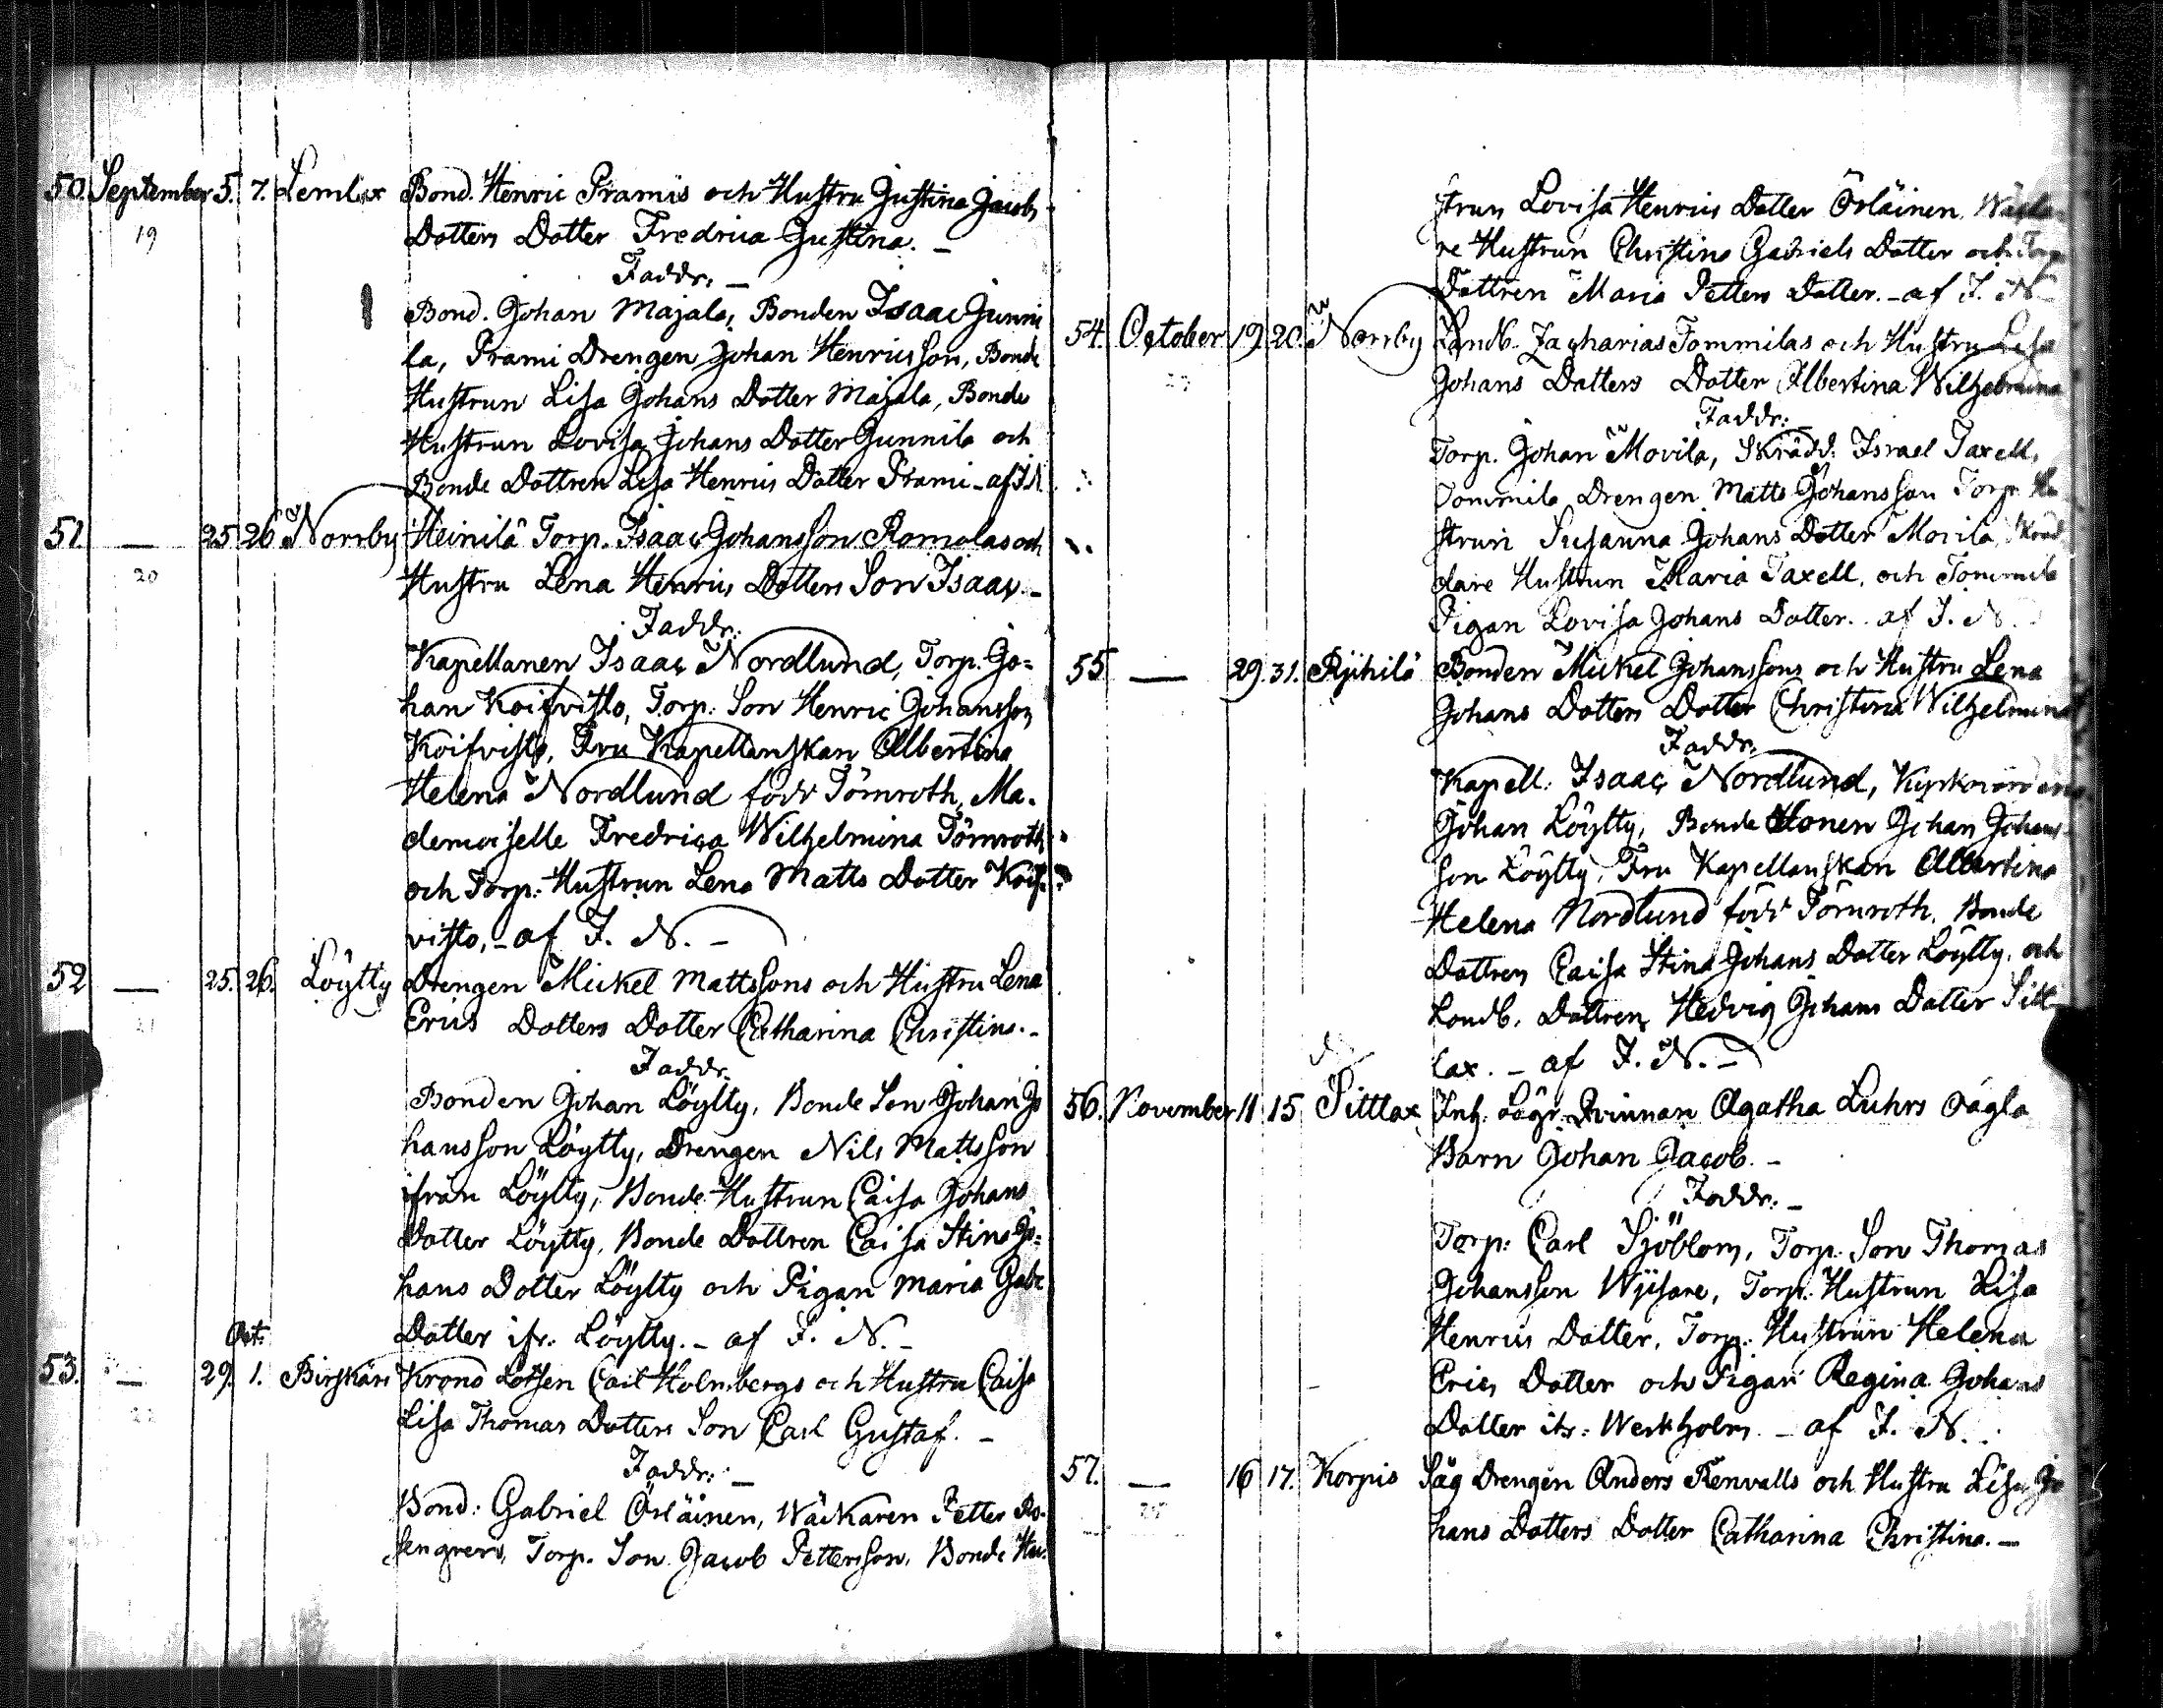 50. September 5. 7. Lemlax Bond. Henric Pramis och Hustru Justina Jacobs
19 Dotters Dotter Fredrica Justina. –
Faddr. –
Bond. Johan Majala, Bonden Isaac Junni
la, Prami Drengen Johan Henricsson, Bonde
Hustrun Lisa Johans Dotter Majala, Bonde
Hustrun Lovisa Johans Dotter Junnila och
Bonde Dottren Lisa Henrics Dotter Prami – af I.N.
51. — 25. 26 Norrby Heinilä Torp. Isaac Johansson Romolas och
20 Hustru Lena Henrics Dotters Son Isaac. –
Faddr.
Kapellanen Isaac Nordlund, Torp. Jo=
han Koifvisto, Torp: Son Henric Johansson
Koifvisto, Fru Kapellanskan Albertina
Helena Nordlund född Törnroth, Ma.
demoiselle Fredrica Wilhelmina Törnroth,
och Torp: Hustrun Lena Matts Dotter Koif=
visto, – af I. N. –
52 — 25. 26. Löytty Drengen Mickel Mattssons och Hustru Lena
21 Erics Dotters Dotter Catharina Christina. –
Faddr.
Bonden Johan Löytty, Bonde Son Johan Jo
hansson Löytty, Drengen Nils Mattsson
ifrån Löytty, Bonde Hustrun Caisa Johans
Dotter Löytty, Bonde Dottren Caisa Stina Jo=
hans Dotter Löytty och Pigan Maria Gabr.
Oct. Dotter ifr: Löytty. – af I. N. –
53. — 29. 1. Birskärs Krono Lotsen Carl Holmbergs och Hustru Caisa
22 Lisa Thomas Dotters Son Carl Gustaf. –
Faddr: –
Bond: Gabriel Örläinen, Wäkaren Petter Ro-
sengren, Torp. Son Jacob Pettersson, Bonde Hu-
strun Lovisa Henrics Dotter Örläinen,
re Hustrun Christina Gabriels Dotter och Torp
Dottren Maria Petters Dotter. – af I. N –
54. October 19. 20. Norrby Landb. Zacharias Tommilas och Hustru Lisa
23 Johans Dotters Dotter Albertina Wilhelmina
Faddr: –
Torp. Johan Movila, Skrädd: Israel Taxell,
Tommila Drengen Matts Johansson Torp. Hu
strun Susanna Johans Dotter Movila, Skräd
dare Hustrun Maria Taxell, och Tommila
Pigan Lovisa Johans Dotter. af I. N.
55. — 29. 31. Pyhilä Bonden Mickel Johanssons och Hustru Lena
Johans Dotters Dotter Christina Wilhelmina
Faddr.
Kapell: Isaac Nordlund, Kyrkovärden
Johan Löytty, Bonde Sonen Johan Johans-
son Löytty, Fru Kapellanskan Albertina
Helena Nordlund född Törnroth, Bonde
Dottren Caisa Stina Johans Dotter Löytty, och
Landb. Dottren Hedvig Johans Dotter Sitt
lax. – af I. N. –
56. November 11 15 Sittlax Inh. Lägr. Qvinnan Agatha Luhrs Oägta
Barn Johan Jacob. –
Faddr: –
Torp: Carl Sjöblom, Torp. Son Thomas
Johansson Wyisare, Torp. Hustrun Lisa
Henrics Dotter, Torp: Hustrun Helena
Erics Dotter och Pigan Regina Johans
Dotter ifr: Werkholm – af I. N.
57. — 16 17. Korpis Säg Drengen Anders Renvalls och Hustru Lisa Jo
25 hans Dotters Dotter Catharina Christina. –